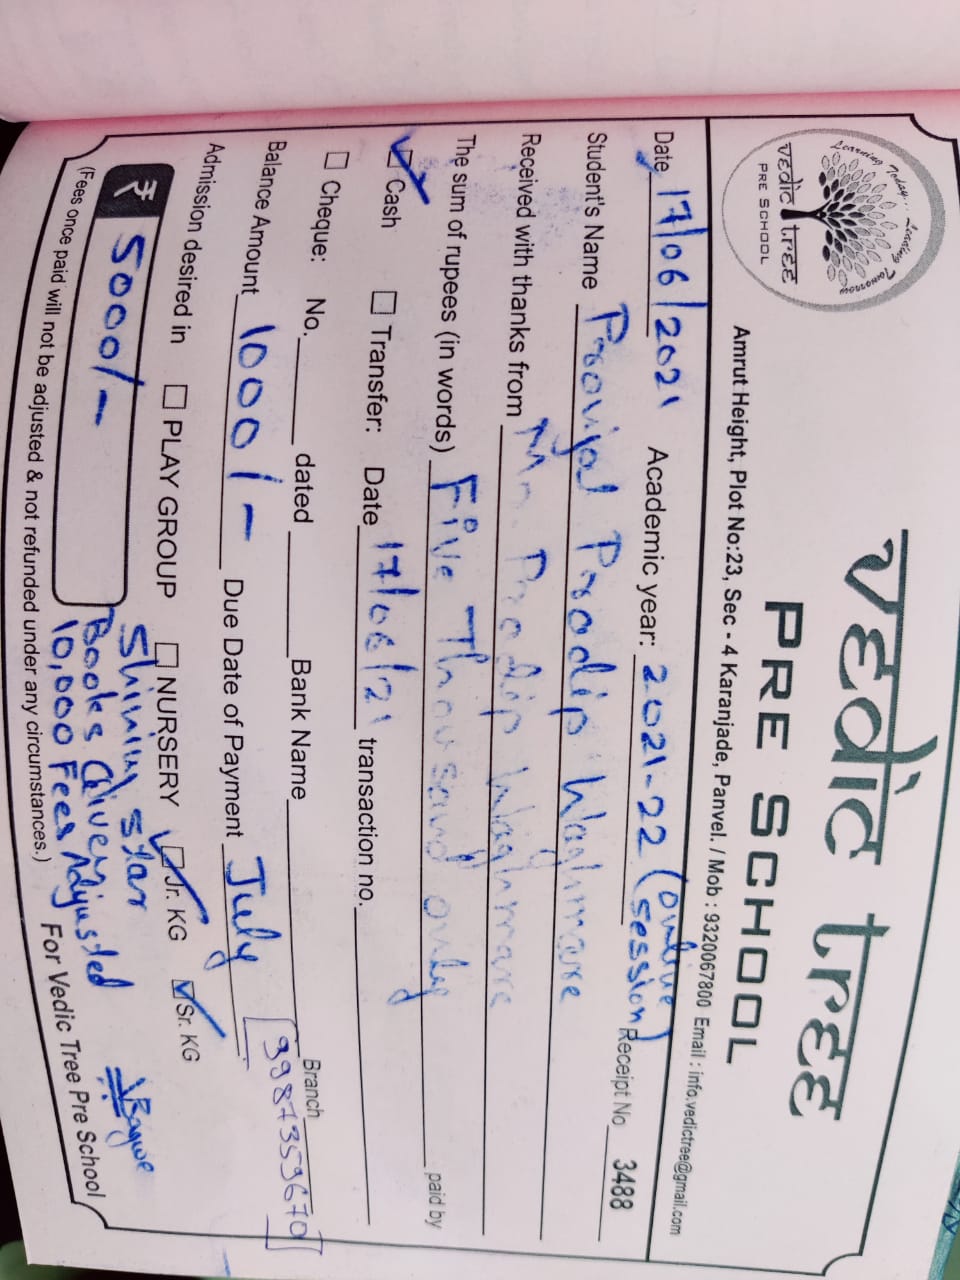 Learning Today... Leading Tomorrow
vedic tree
PRE SCHOOL
vedic tree
PRE SCHOOL
Amrut Height, Plot No:23, Sec - 4 Karanjade, Panvel. / Mob : 9320067800 Email : info.vedictree@gmail.com
Date 17/06/2021 Academic year: 2021-22 (Online Session) Receipt No 3488
Student's Name Pradip Waghmare
Received with thanks from Mr. Pradip Waghmare
The sum of rupees (in words) Five Thousand only paid by
Cash Transfer: Date 17/06/21 transaction no.
Cheque: No. dated Bank Name Branch
Balance Amount 1000/- Due Date of Payment July 9987359670
Admission desired in PLAY GROUP NURSERY Jr. KG Sr. KG
₹ 5000/-
Shining Star
Books Given
10,000 Fees Adjusted
(Fees once paid will not be adjusted & not refunded under any circumstances.) For Vedic Tree Pre School